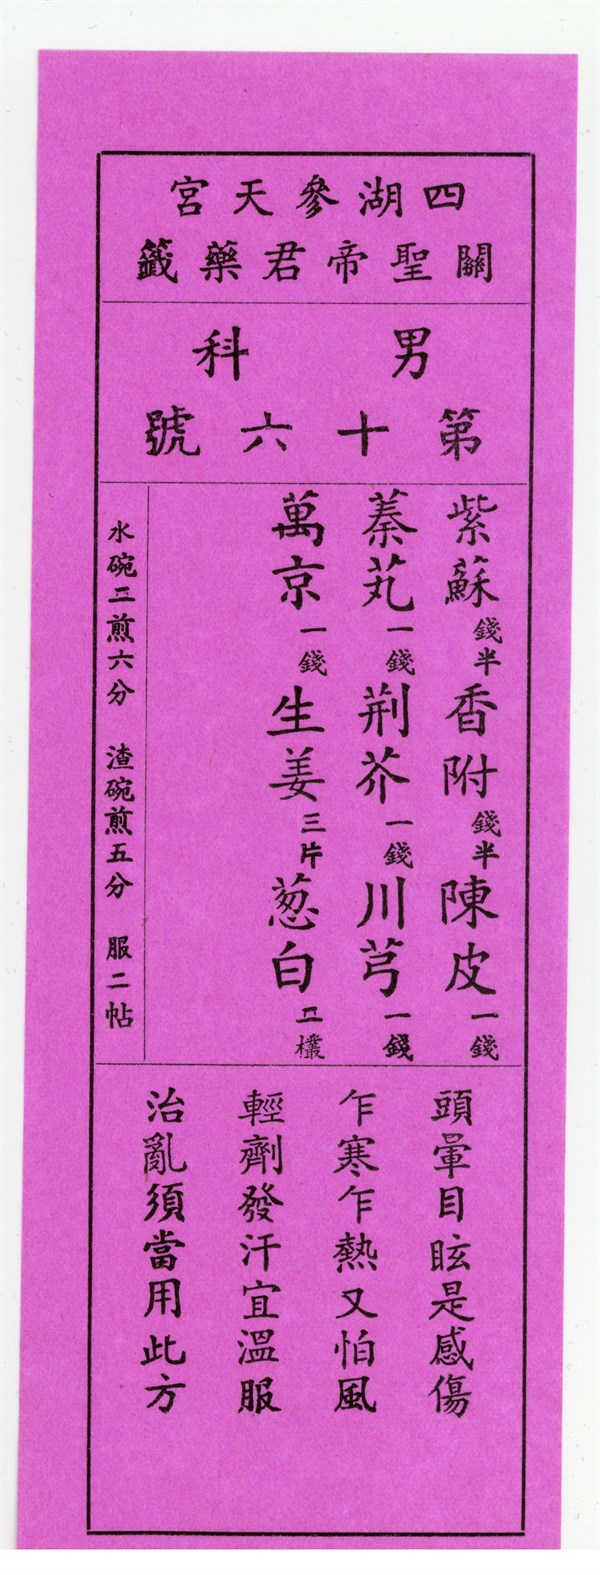 四湖參天宮
關聖帝君藥籤
男科
第十六號
紫蘇錢半 香附錢半 陳皮一錢
蓁芄一錢 荆芥一錢 川芎一錢
萬京一錢 生姜三片 葱白二欉
水碗二煎六分 渣碗煎五分 服二帖
頭暈目眩是感傷
乍寒乍熱又怕風
輕劑發汗宜溫服
治亂須當用此方